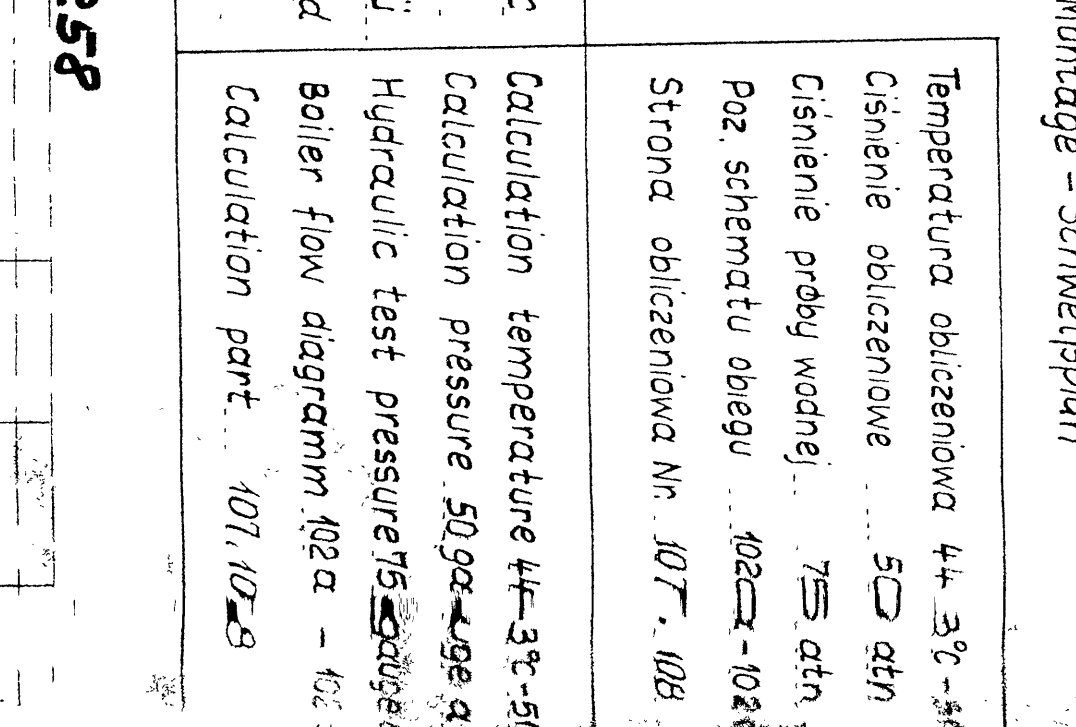 Montage - Schweißplan
Temperatura obliczeniowa 443°C -
Ciśnienie obliczeniowe .... 50 atn
Ciśnienie próby wodnej... 75 atn
Poz. schematu obiegu .... 102a - 102
Strona obliczeniowa Nr. 107. 108
Calculation temperature 443°C -
Calculation pressure 50 gauge
Hydraulic test pressure 75 gauge
Boiler flow diagramm 102a - 102
Calculation part 107, 108
58